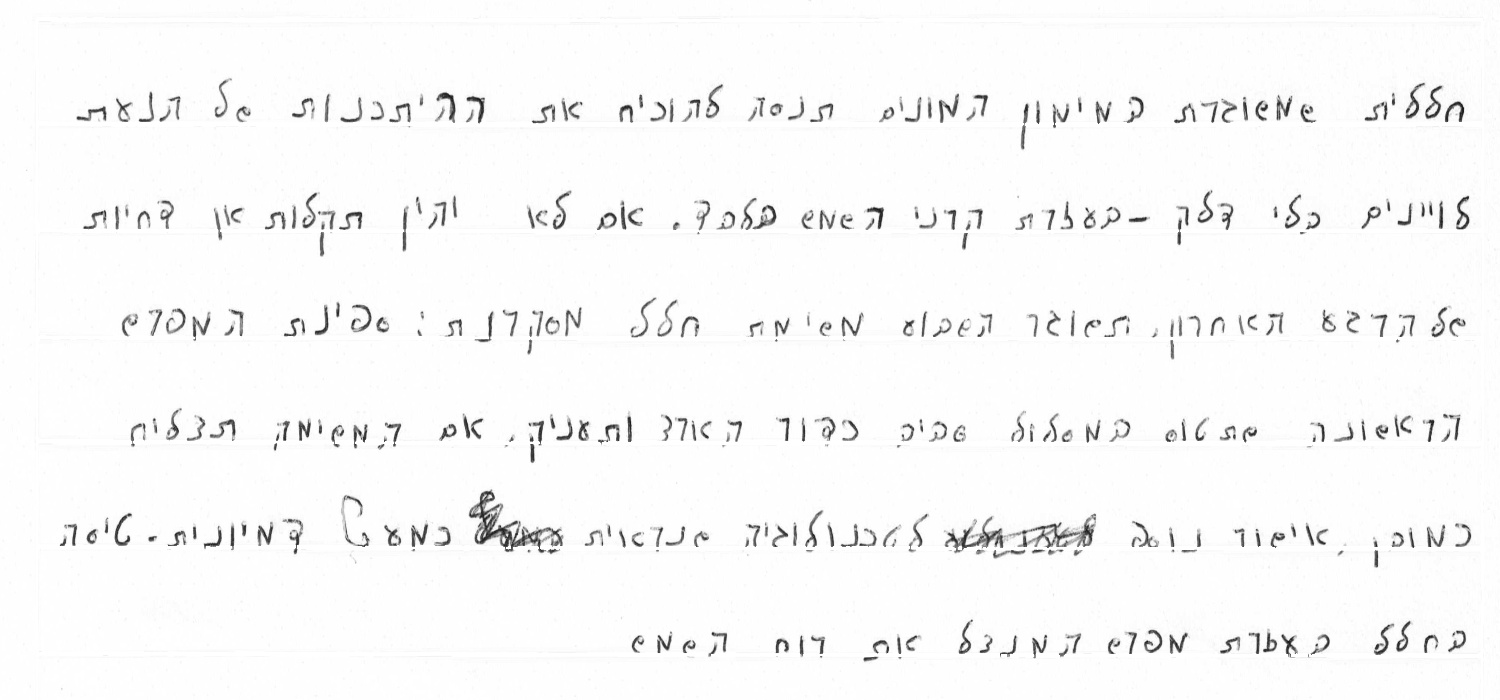 חללית שמשוגרת במימון המונים תנסה להוכיח את ההיתכנות של הנעת
לוויינים בלי דלק - בעזרת קרני השמש בלבד. אם לא יהיו תקלות או דחיות
של הרגע האחרון, תשוגר השבוע משימת חלל מסקרנת: ספינת המפרש
הראשונה שתטוס במסלול סביב כדור הארץ ותעניק, אם המשימה תצליח
כמובן, אישור נוסף לטכנולוגיה שנראית כמעט דמיונית - טיסה
בחלל בעזרת מפרש המנצל את רוח השמש